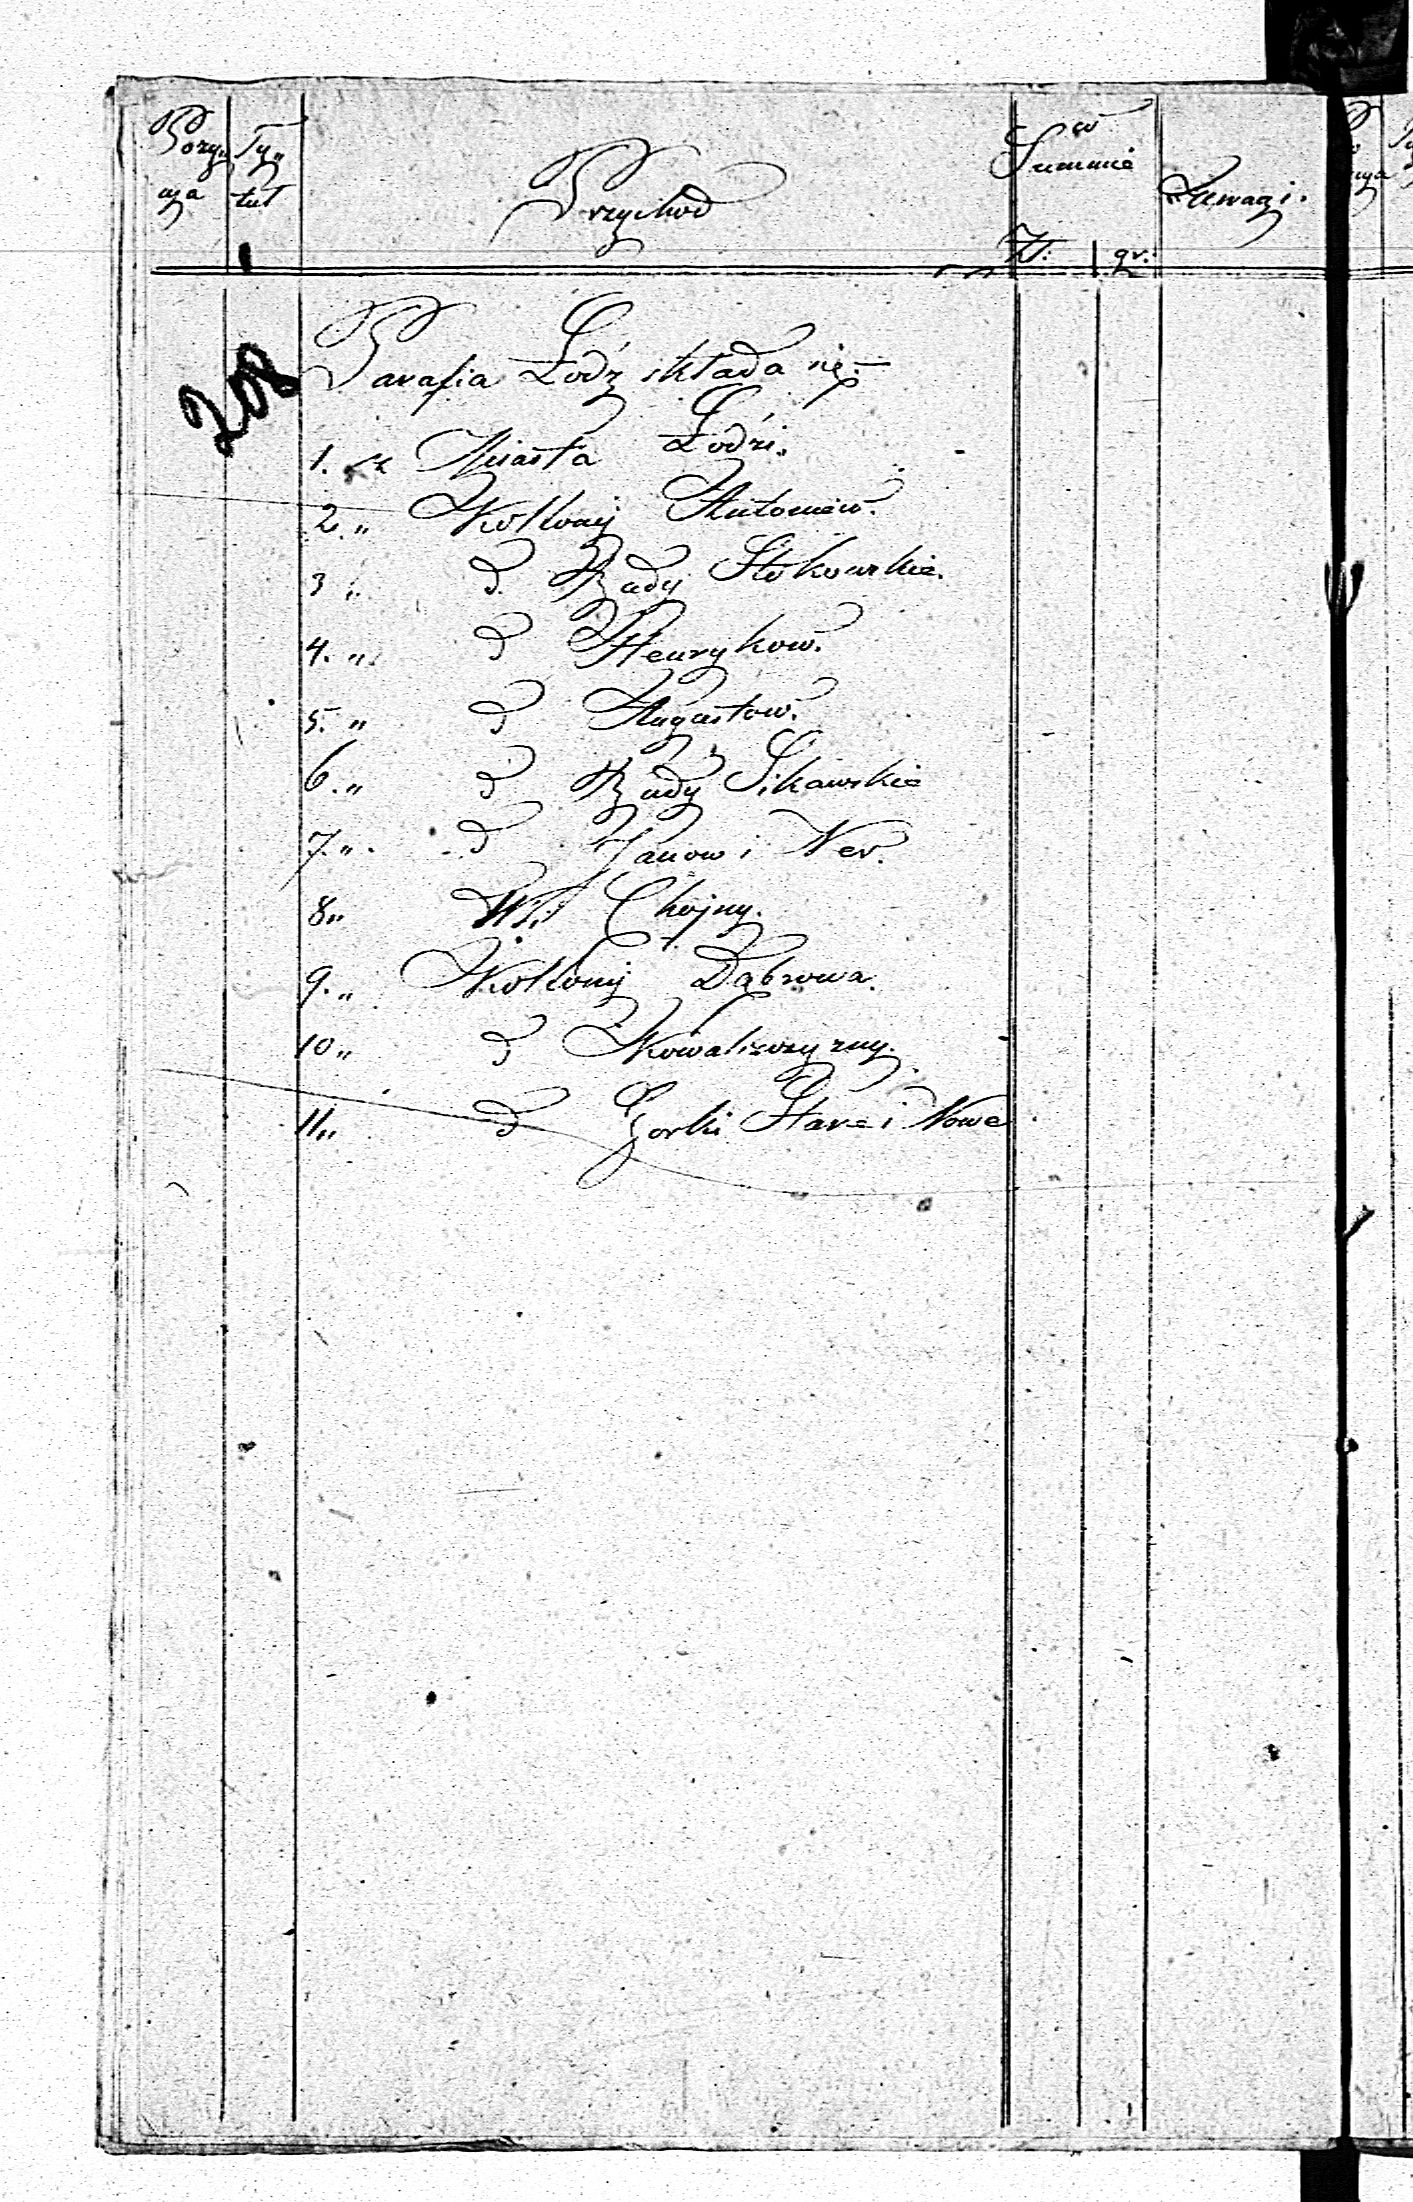 Pozy„ cya
Ty„ tuł
Przychod
w Summie
Zł: gr.
Uwagi.
208
Parafia Łodź składa się.
1. z Miasta Łodzi.
2. „ Kollonij Antoniew.
3 „ d Rady Stokowskie.
4. „ d Henrykow.
5. „ d Augustow.
6. „ d Rady Sikawskie
7. „ d Janow i Ner.
8 „ Wsi Chojny.
9. „ Kollonij Dąbrowa.
10 „ d Kowalszczyzny.
11 „ d Gorki Stare i Nowe